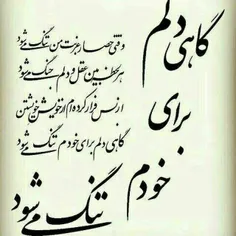 گاهی دلم
برای
خودم
تنگ می شود
وقتی حصار غربت من تنگ می شود
هر لحظه بین عقل و دلم جنگ می شود
از بس فرار کرده ام از خویش خویشتن
گاهی دلم برای خودم تنگ می شود